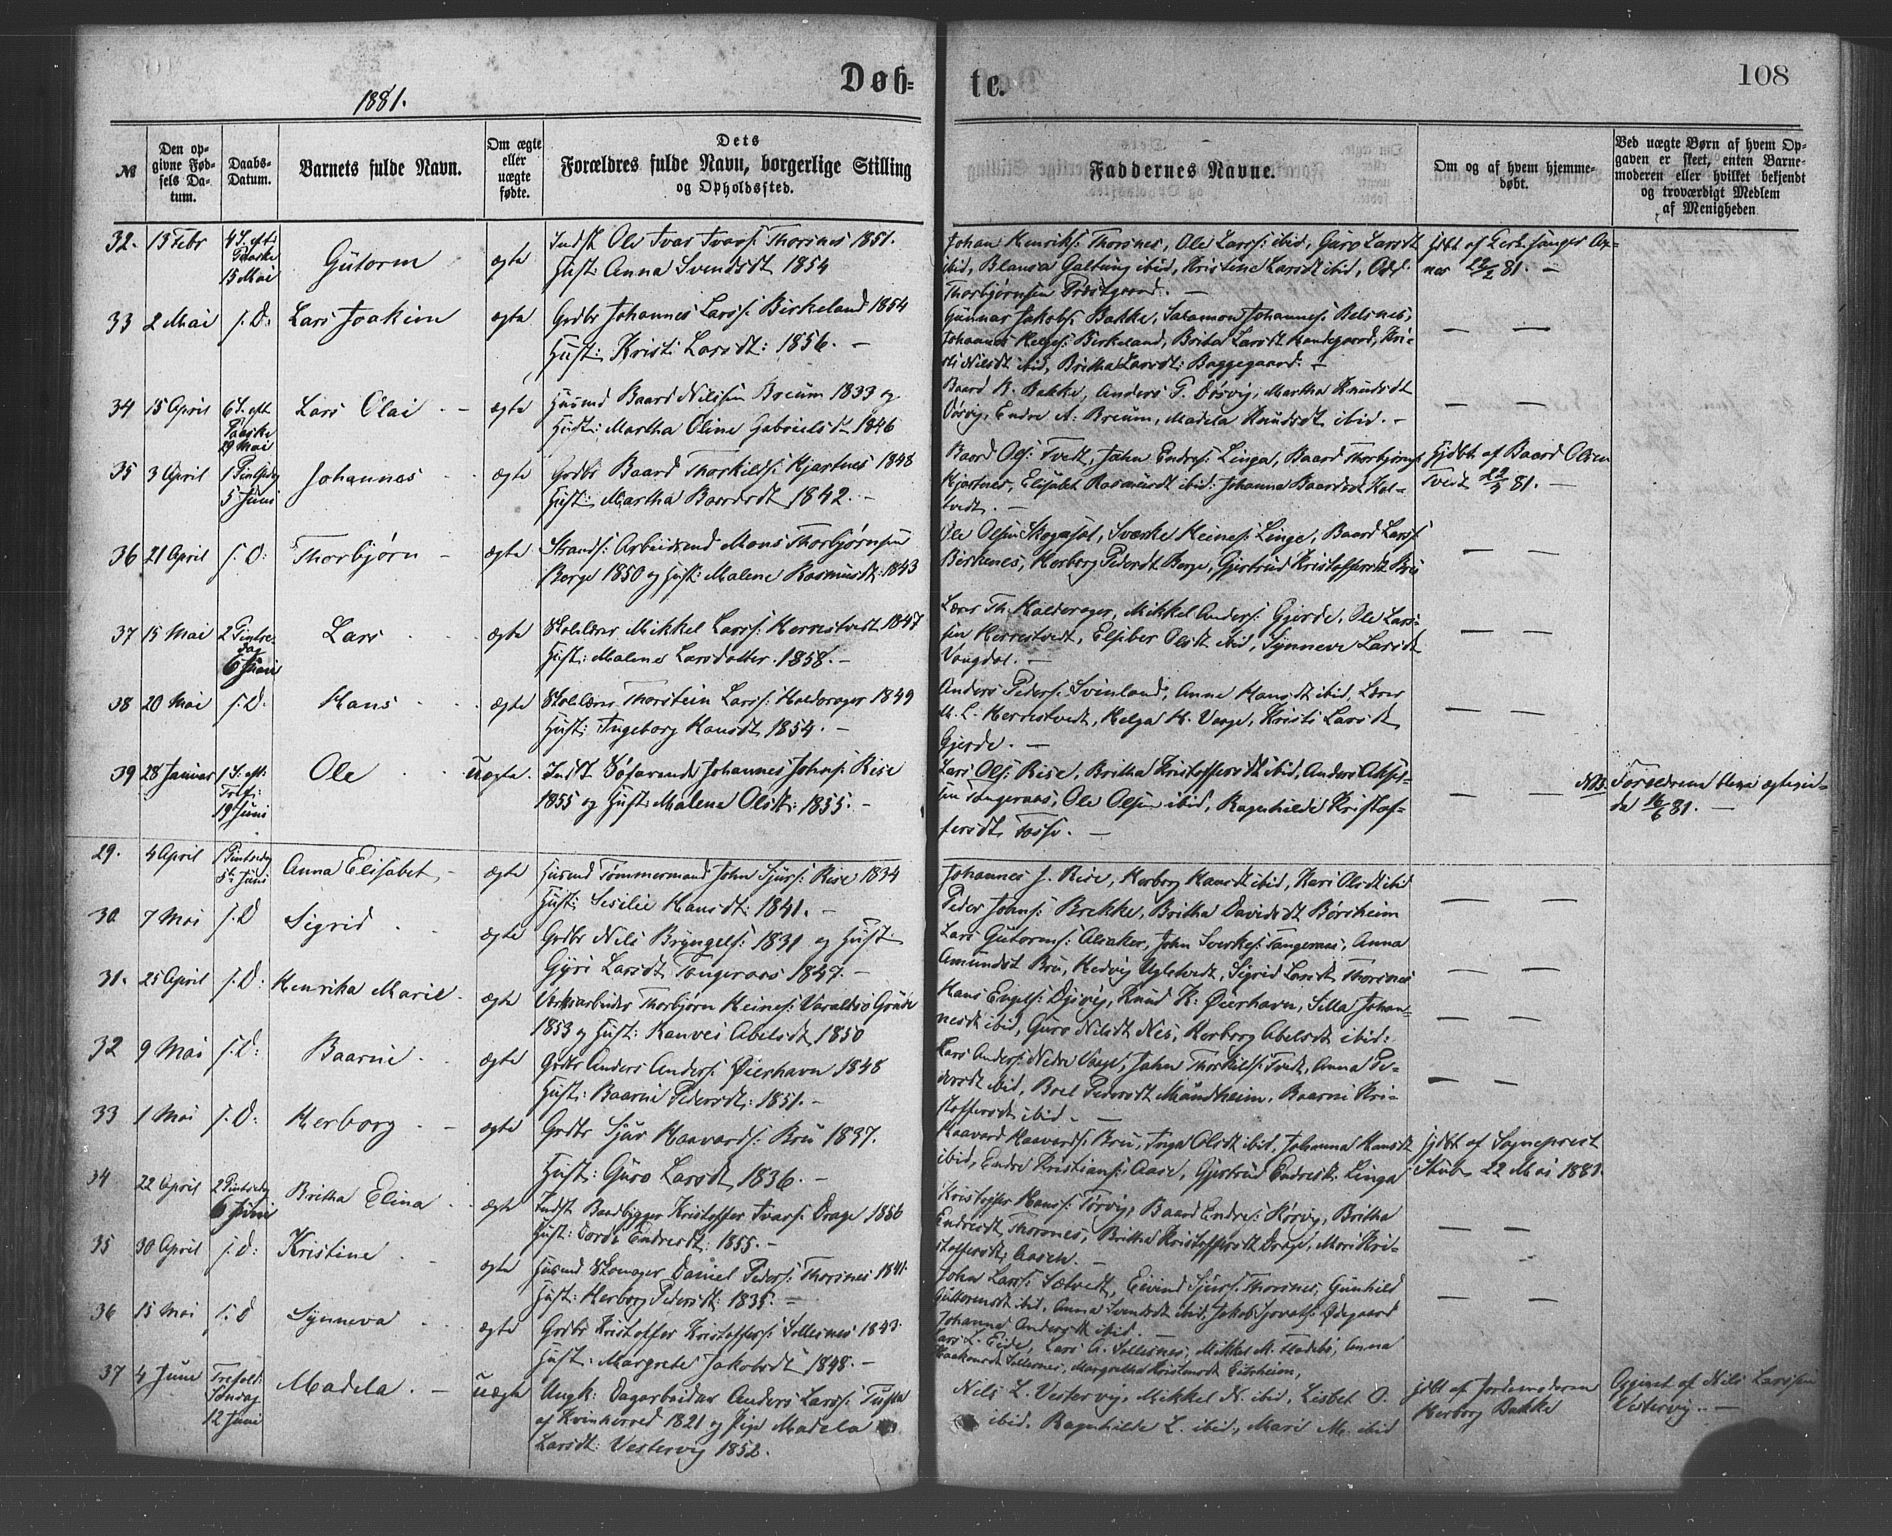 1881.
Døb-
te.
108
№
Den op-
givne Fød-
sels Da-
tum.
Daabs-
Datum.
Barnets fulde Navn.
Om ægte
eller
uægte
fødte.
Dets
Forældres fulde Navn, borgerlige Stilling
og Opholdssted.
Faddernes Navne.
Om og af hvem hjemme-
døbt.
Ved uægte Børn af hvem Op-
gaven er skeet, enten Barne-
moderen eller hvilket bekjendt
og troværdigt Medlem
af Menigheden
32. 13 Febr
4 S. eft.
Paaske
15 Mai
Gutorm
ægte
Indst Ole Ivar Ivars: Thorsnes 1851.
Hust: Anna Svendsdt 1854
Johan Henriks: Thorsnes, Ole Larss: ibid, Guro Larsdt
ibid, Blansa Galtung ibid, Kristine Larsdt ibid, Odd
Thorbjørnsen
hjdbt af Kirkesanger
22/2 81. —
33 2 Mai s. D: Lars Joakim ægte
Grdbr Johannes Larss: Birkeland 1854
Hust: Kristi Larsdt: 1856. —
Gunnar Jakobs: Bakke, Salamon Johannes: Belsnes,
Johannes Helges: Birkeland, Brita Larsdt Handegaard, Kri-
sti Nilsdt ibid, Britha Larsdt: Baggegaard. —
— —
34 15 April
6 S. eft
Paaske
29 Mai
Lars Olai — ægte
Husmd Baard Nilsen Breum 1833 og
Hust: Martha Oline Gabrielsdt 1846
Baard N. Bakke, Anders T. Dosvig, Martha Knudsdt
Dosvig, Endre A: Breum, Madela Knudsdt ibid. —
— —
35 3 April
1 Pintsedag
5 Juni
Johannes ægte
Grdbr Baard Thorkilds: Kjartnes 1848
Hust: Martha Baardsdt 1842. —
Baard Ols: Tvedt, John Endres: Linga, Baard Thorbjørns:
Kjartnes, Elisabet Rasmusdt ibid: Johanna Baardsdt
tvedt. —
hjdbt af Baard Olsen
Tvedt 22/4 81. —
36 21 April s. D: Thorbjørn — ægte
Strands: Arbeidsmd Mons Thorbjørnsen
Berge 1850 og Hust: Malene Rasmusdt: 1843
Ole Olsen Skogasel, Sverke Heines: Linge, Baard Larss:
Birkenes, Herborg Pedersdt Berge, Gjertrud Kristoffersdt
— —
37 15 Mai
2 Pintse-
dag
6 Juni
Lars ægte
Skolelærer Mikkel Larss: Herrestvedt 1847
Hust: Malene Larsdatter 1858. —
Lærer Th. Halderager, Mikkel Anders: Gjerde, Ole Lars-
sen Herrestvedt, Elsiber Olsdt ibid, Synneve Larsdt
Vangdal. —
— —
38 20 Mai s. D: Hans ægte
Skolelærer Thorstein Larss: Halderager 1849
Hust: Ingeborg Hansdt 1854. —
Anders Peders: Svinland, Anne Hansdt ibid, Lærer
M. L. Herrestvedt, Helga H. Vaage, Kristi Larsdt
Gjerde. —
— —
39 28 Januar
1 S. eft:
Tref:
19 Juni
Ole uægte.
Indst Søfarende Johannes Johns: Rise
1855 og Hust: Malena Olsdt: 1855. —
Lars Ols: Rise, Britha Kristoffersdt ibid, Anders Aksjels-
sen Tangeraas, Ole Olsen ibid, Ragnhilde Kristof-
fersdt Tosse. —
— —
NB. Forældrene bleve ægtevi-
de 16/6 81. —
29. 4 April
1 Pintsedag
5te Juni
Anna Elisabet — ægte
Husmd Tømmermand John Sjurs: Rise 1834
Hust: Sesilie Hansdt: 1841. —
Johannes J. Rise, Herborg Hansdt ibid, Kari Olsdt ibid
Peder Johns: Brekke, Britha Davidsdt Børsheim
— —
30 7 Mai s. D Sigrid ægte
Grdbr Nils Bryngels: 1831 og Hust:
Gyri Larsdt Tangeraas 1847. —
Lars Gutorms: Alsaker, John Sverkes: Tangeraas, Anna
Amundsdt Bru, Hedvig Uglstvedt, Sigrid Larsdt Thorsnes
— —
31. 25 April s. D: Henrika Marie. ægte
Verksarbeider Thorbjørn Heines: Varaldsø Grube
1853 og Hust: Ranvei Abelsdt 1850
Hans Engels: Djupvig, Knud K: Øierhavn, Silla Johan-
nesdt ibid, Guro Nilsdt Nes, Herborg Abelsdt ibid:
— —
32 9 Mai s. D: Baarni ægte
Grdbr Anders Anders: Øierhavn 1848
Hust: Baarni Pedersdt: 1851. —
Lars Anders: Nedre Vaage, John Thorkills: Tvedt, Anna Pe-
dersdt ibid, Brel Pedersdt Mundheim, Baarni Kri-
stoffersdt ibid. —
— —
33 1 Mai s. D: Herborg ægte
Grdbr Sjur Haavards: Bru 1837.
Hust: Guro Larsdt 1836. —
Haavard Haavards: Bru, Inga Olsdt ibid, Johanna Hansdt
ibid, Endre Kristians: Aase, Gjertrud Endresdt Linga
hjdbt af Sogneprest
Skub 22 Mai 1881
34 22 April
2 Pintsedag
6 Juni
Britha Elina ægte
Indst Baadbygger Kristoffer Ivars: Drage 1856
Hust: Dorde Endresdt: 1855. —
Kristoffer Hans: Tørvig, Baard Endres: Kørvig, Britha
Endresdt Thorsnes, Britha Kristoffersdt Drage, Mari Kri-
stoffersdt Aasen. —
— —
35 30 April s. D: Kristine ægte
Husmd Skomager Daniel Peders: Thorsnes 1841.
Hust: Herborg Pedersdt: 1835. —
John Larss: Sætvedt, Eivind Sjurs: Thorsnes, Gunhild
Guttormsdt ibid, Anna Svendsdt ibid, Jakob Ødegaard
Johanna Andersdt ibid. —
— —
36 15 Mai s. D Synneva ægte
Grdbr Kristoffer Kristoffers: Sollesnes 1843.
Hust: Margrete Jakobsdt 1848. —
Lars L. Eide, Lars A. Sollesnes, Mikkel M. Fladebø, Anna
Haakonsdt Sollesnes, Margretha Kristensdt Eitrheim,
37 4 Juni
Trefold:
Søndag
12 Juni
Madela. — uægte
Ungk: Dagarbeider Anders Larss:
af Kvinherred 1821 og Pige Madela
Larsdt: Vestervig 1852.
Nils L. Vestervig, Mikkel N. ibid, Lisbet O.
ibid. Ragnhilde L. ibid., Mari M. ibid
hjdbt af Jordemoderen
Herborg Bakke
Opgivet af Nils Larssen
Vestervig. —